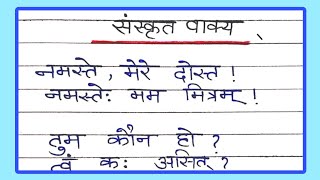 संस्कृत वाक्य
नमस्ते, मेरे दोस्त !
नमस्तेः मम मित्रम् !
तुम कौन हो ?
त्वं कः असित् ?